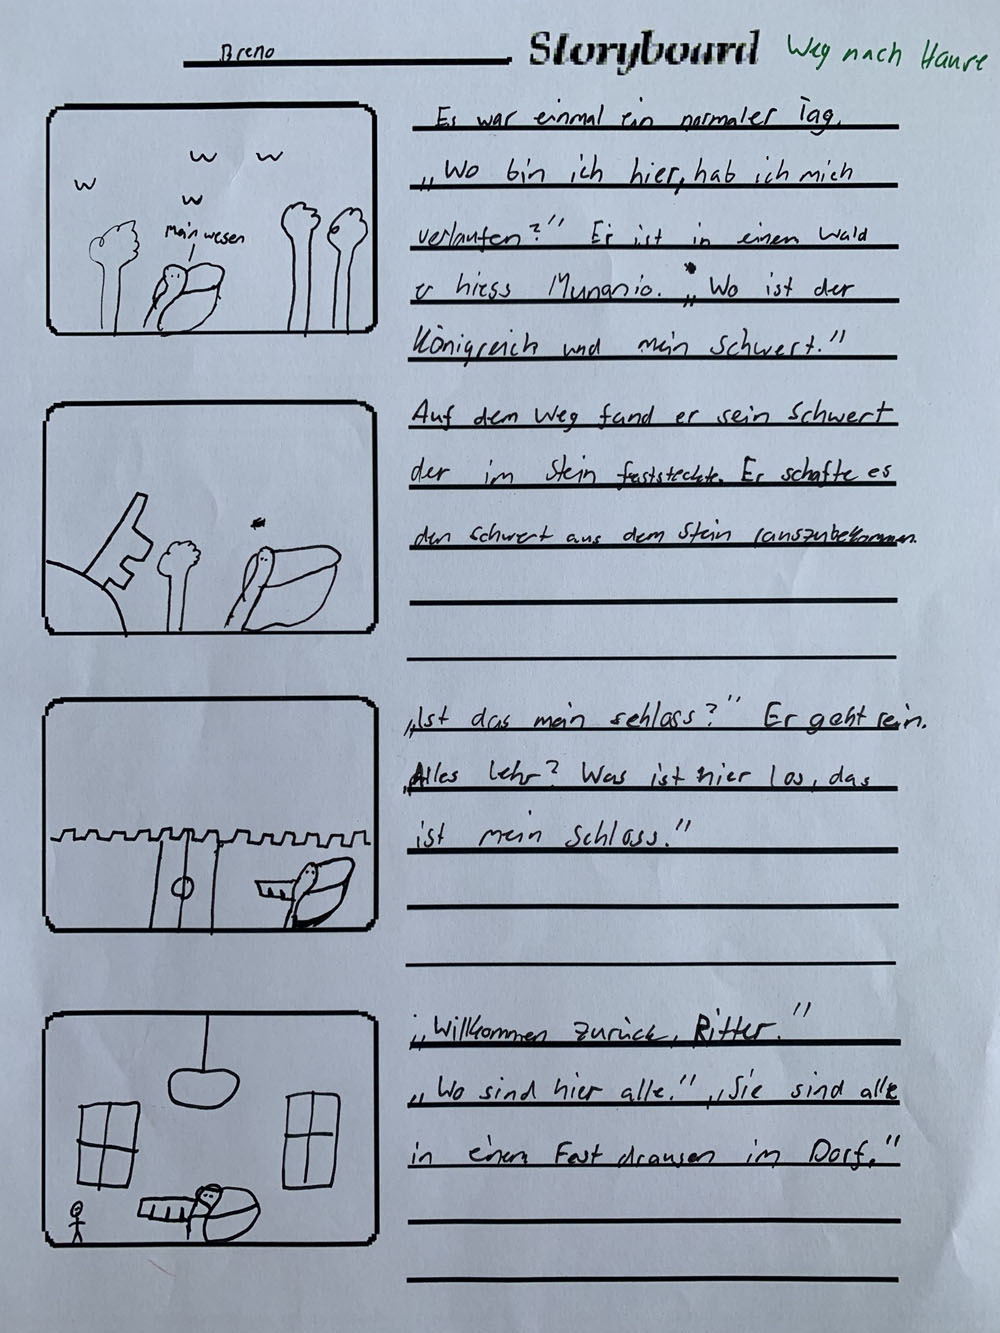 Breno
Storyboard Weg nach Hause
Es war einmal ein normaler Tag.
„Wo bin ich hier, hab ich mich
verlaufen?" Er ist in einem Wald
er hiess Munanio. „Wo ist der
Königreich und mein Schwert."
Mein wesen
Auf dem Weg fand er sein Schwert
der im Stein feststeckte. Er schafte es
den schwert aus dem Stein rauszubekommen.
„Ist das mein schloss?" Er geht rein.
„Alles lehr? Was ist hier los, das
ist mein Schloss."
„Willkommen zurück, Ritter."
„Wo sind hier alle." „Sie sind alle
in einem Fest drausen im Dorf."